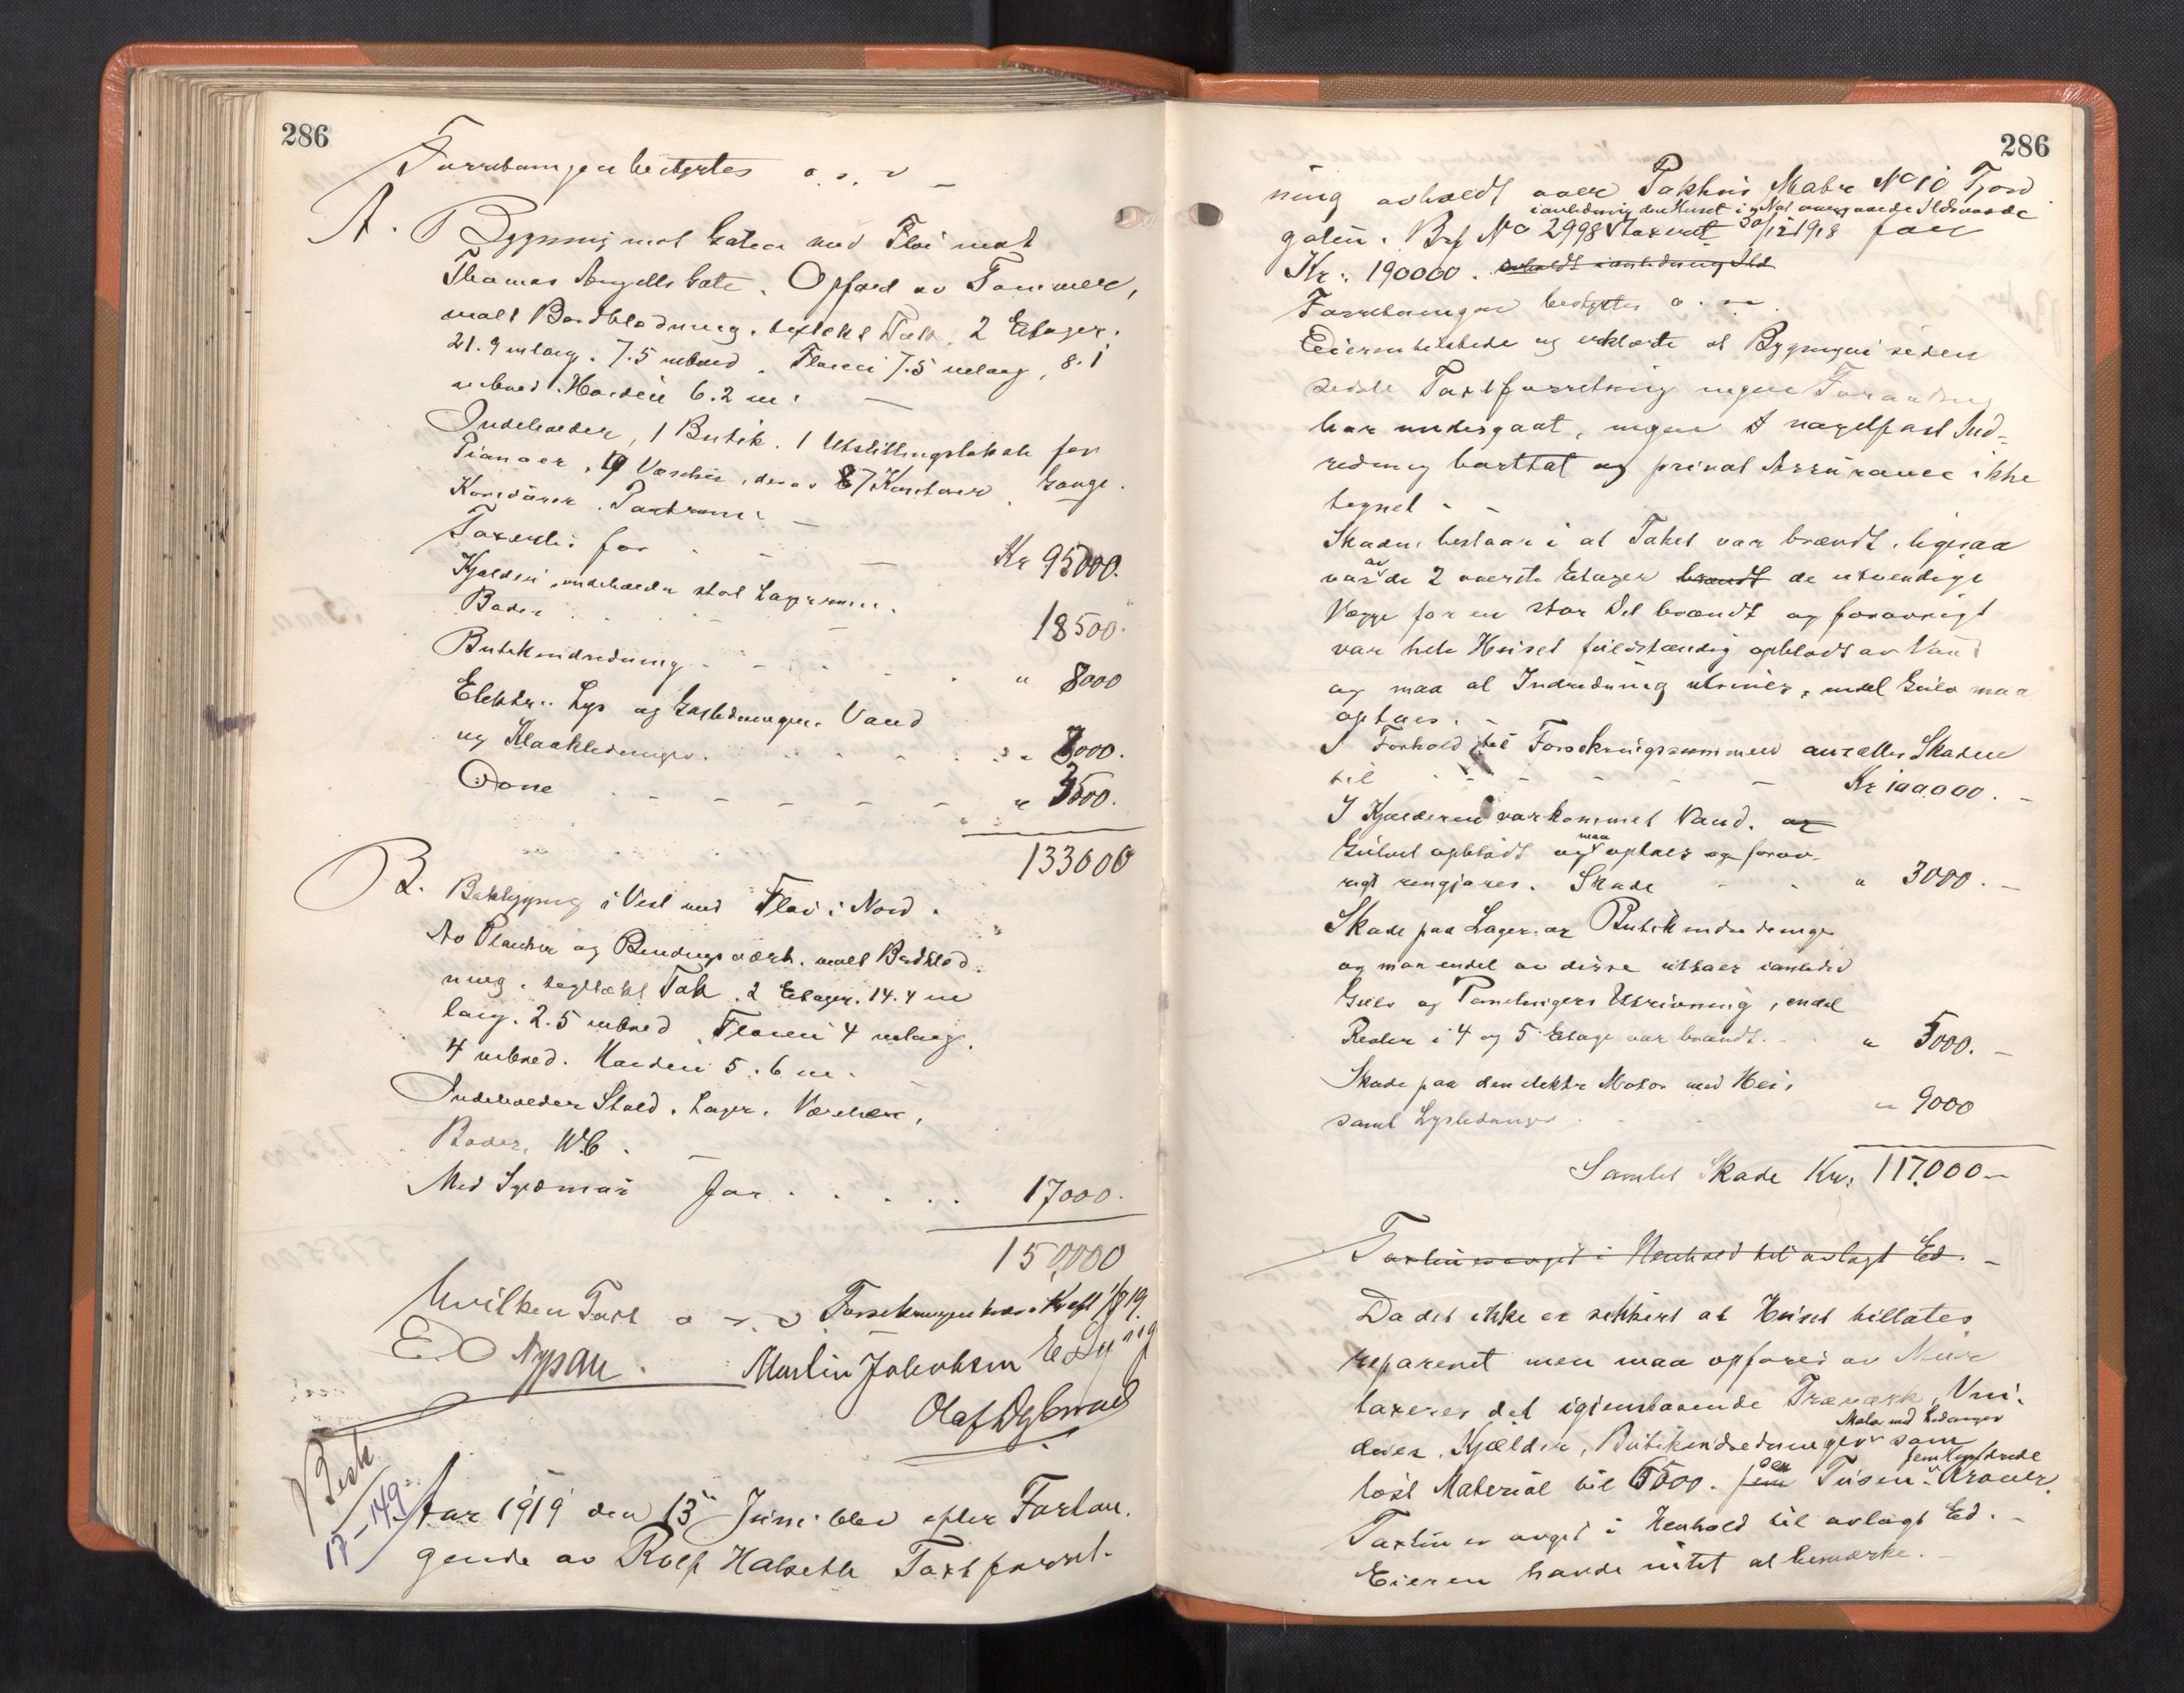 286
Forretningen bestyrtes o. s. v —
A. Bygning mot Gaten med Fløi mot
Thomas Angells Gate. Opført av Tømmer,
malt Bordklædning. teglækt Tak. 2 Etager.
21.9 m lang. 7.5 m bred. Fløien 7.5 m lang, 8.1
m bred. Høiden 6.2 m. —
Indeholder, 1 Butik. 1 Utstillingslokale for
Pianoer, 9 Værelser, derav 7 Kontorer. Gange.
Korridorer. Portrum. —
Taxertes for — Kr 95000.
Kjælderen indeholder stort Lagerrum.
Boder 18500.
Butikindredning " 8000
Elektr. Lys og Gasledninger. Vand
og Kloakledninger. " 000.
Ovne " 500.
133000
B. Bakbygning i Vest med Fløi i Nord.
Av Planker og Bindingsværk. malt Bordklæd-
ning. teglækt Tak. 2 Etager. 14.4 m
lang. 2.5 m bred. Fløien 4 m lang.
4 m bred. Høiden 5.6 m. —
Indeholder Stald. Lager. Værelser,
Boder, W.C. —
Med Grundmur for 17000.
150,000
Hvilken Taxt o. s. v. Forsikringen træe i Kraft 1/8 19.
E. O Nypan. Martin Jakobsen
Olaf Dybwad
Besk
17-149
Aar 1919 den 13 Juni blev efter Forlan-
gende av Rolf Halseth Taxtforret-
286
ning avholdt over Pakhus Mabr No 10 Fjord
i anledning den Huset i Nat overgaaede Ildsvaade
gaten. Brf No 2998 taxeret 30/12 1918 for
Kr. 190000. avholdt i anledning Ild
Forretningen bestyrtes o. s. v.
Eieren tilstede og erklærte at Bygningen siden
sidste Taxtforretning ingen Forandring
har undergaat, ingen nagelfast Ind-
redning borttat og privat Assurance ikke
tegnet. —
Skaden bestaar i at Taket var brændt, ligesaa
av
var de 2 øverste Etager brændt de utvendige
Vægge for en stor Del brændt og forøvrigt
var hele Huset fuldstændig opblødt av Vand
og maa al Indredning utrives, endel Gulv maa
optaes. —
I Forhold til Forsikringssummen ansættes Skaden
til Kr 100.000. —
I Kjælderen var kommet Vand. og
maa
Gulvet opblødt og optaes og forøv-
rigt rengjøres. Skade " 3000. —
Skade paa Lager og Butikindredninger
og maa endel av disse uttaes i anledn
Gulv og Panelingers Utrivning, endel
Reoler i 4 og 5 Etage var brændt. " 5000. —
Skade paa den elektr Motor med Heis
samt Lysledninger " 9000
Samlet Skade Kr. 117.000 —
Taxten er avgit i Henhold til avlagt Ed. —
Da det ikke er sikkert at Huset tillates
reparert men maa opføres av Mur
taxeres det igjenstaaende Træværk, Vin-
Motor med Ledninger
duer, Kjælder, Butikindredninger som
fem Hundrede
løst Material til 6500. fem Tusen Kroner.
Taxten er avgit i Henhold til avlagt Ed. —
Eieren havde intet at bemærke. —